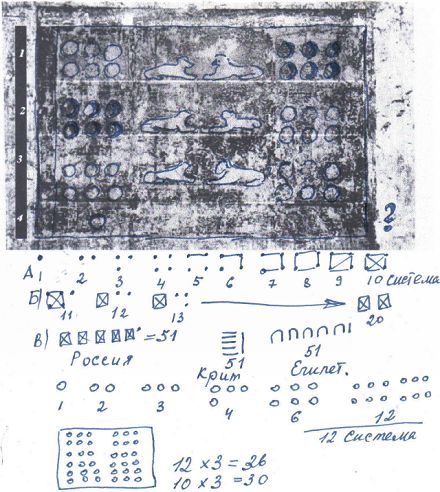 1
2
3
4
?
А
1 2 3 4 5 6 7 8 9 10 система
Б)
11 12 13 20
В) = 51
51 51
Россия Крит Египет.
1 2 3 4 6 12
12 система
12 x 3 = 36
10 x 3 = 30